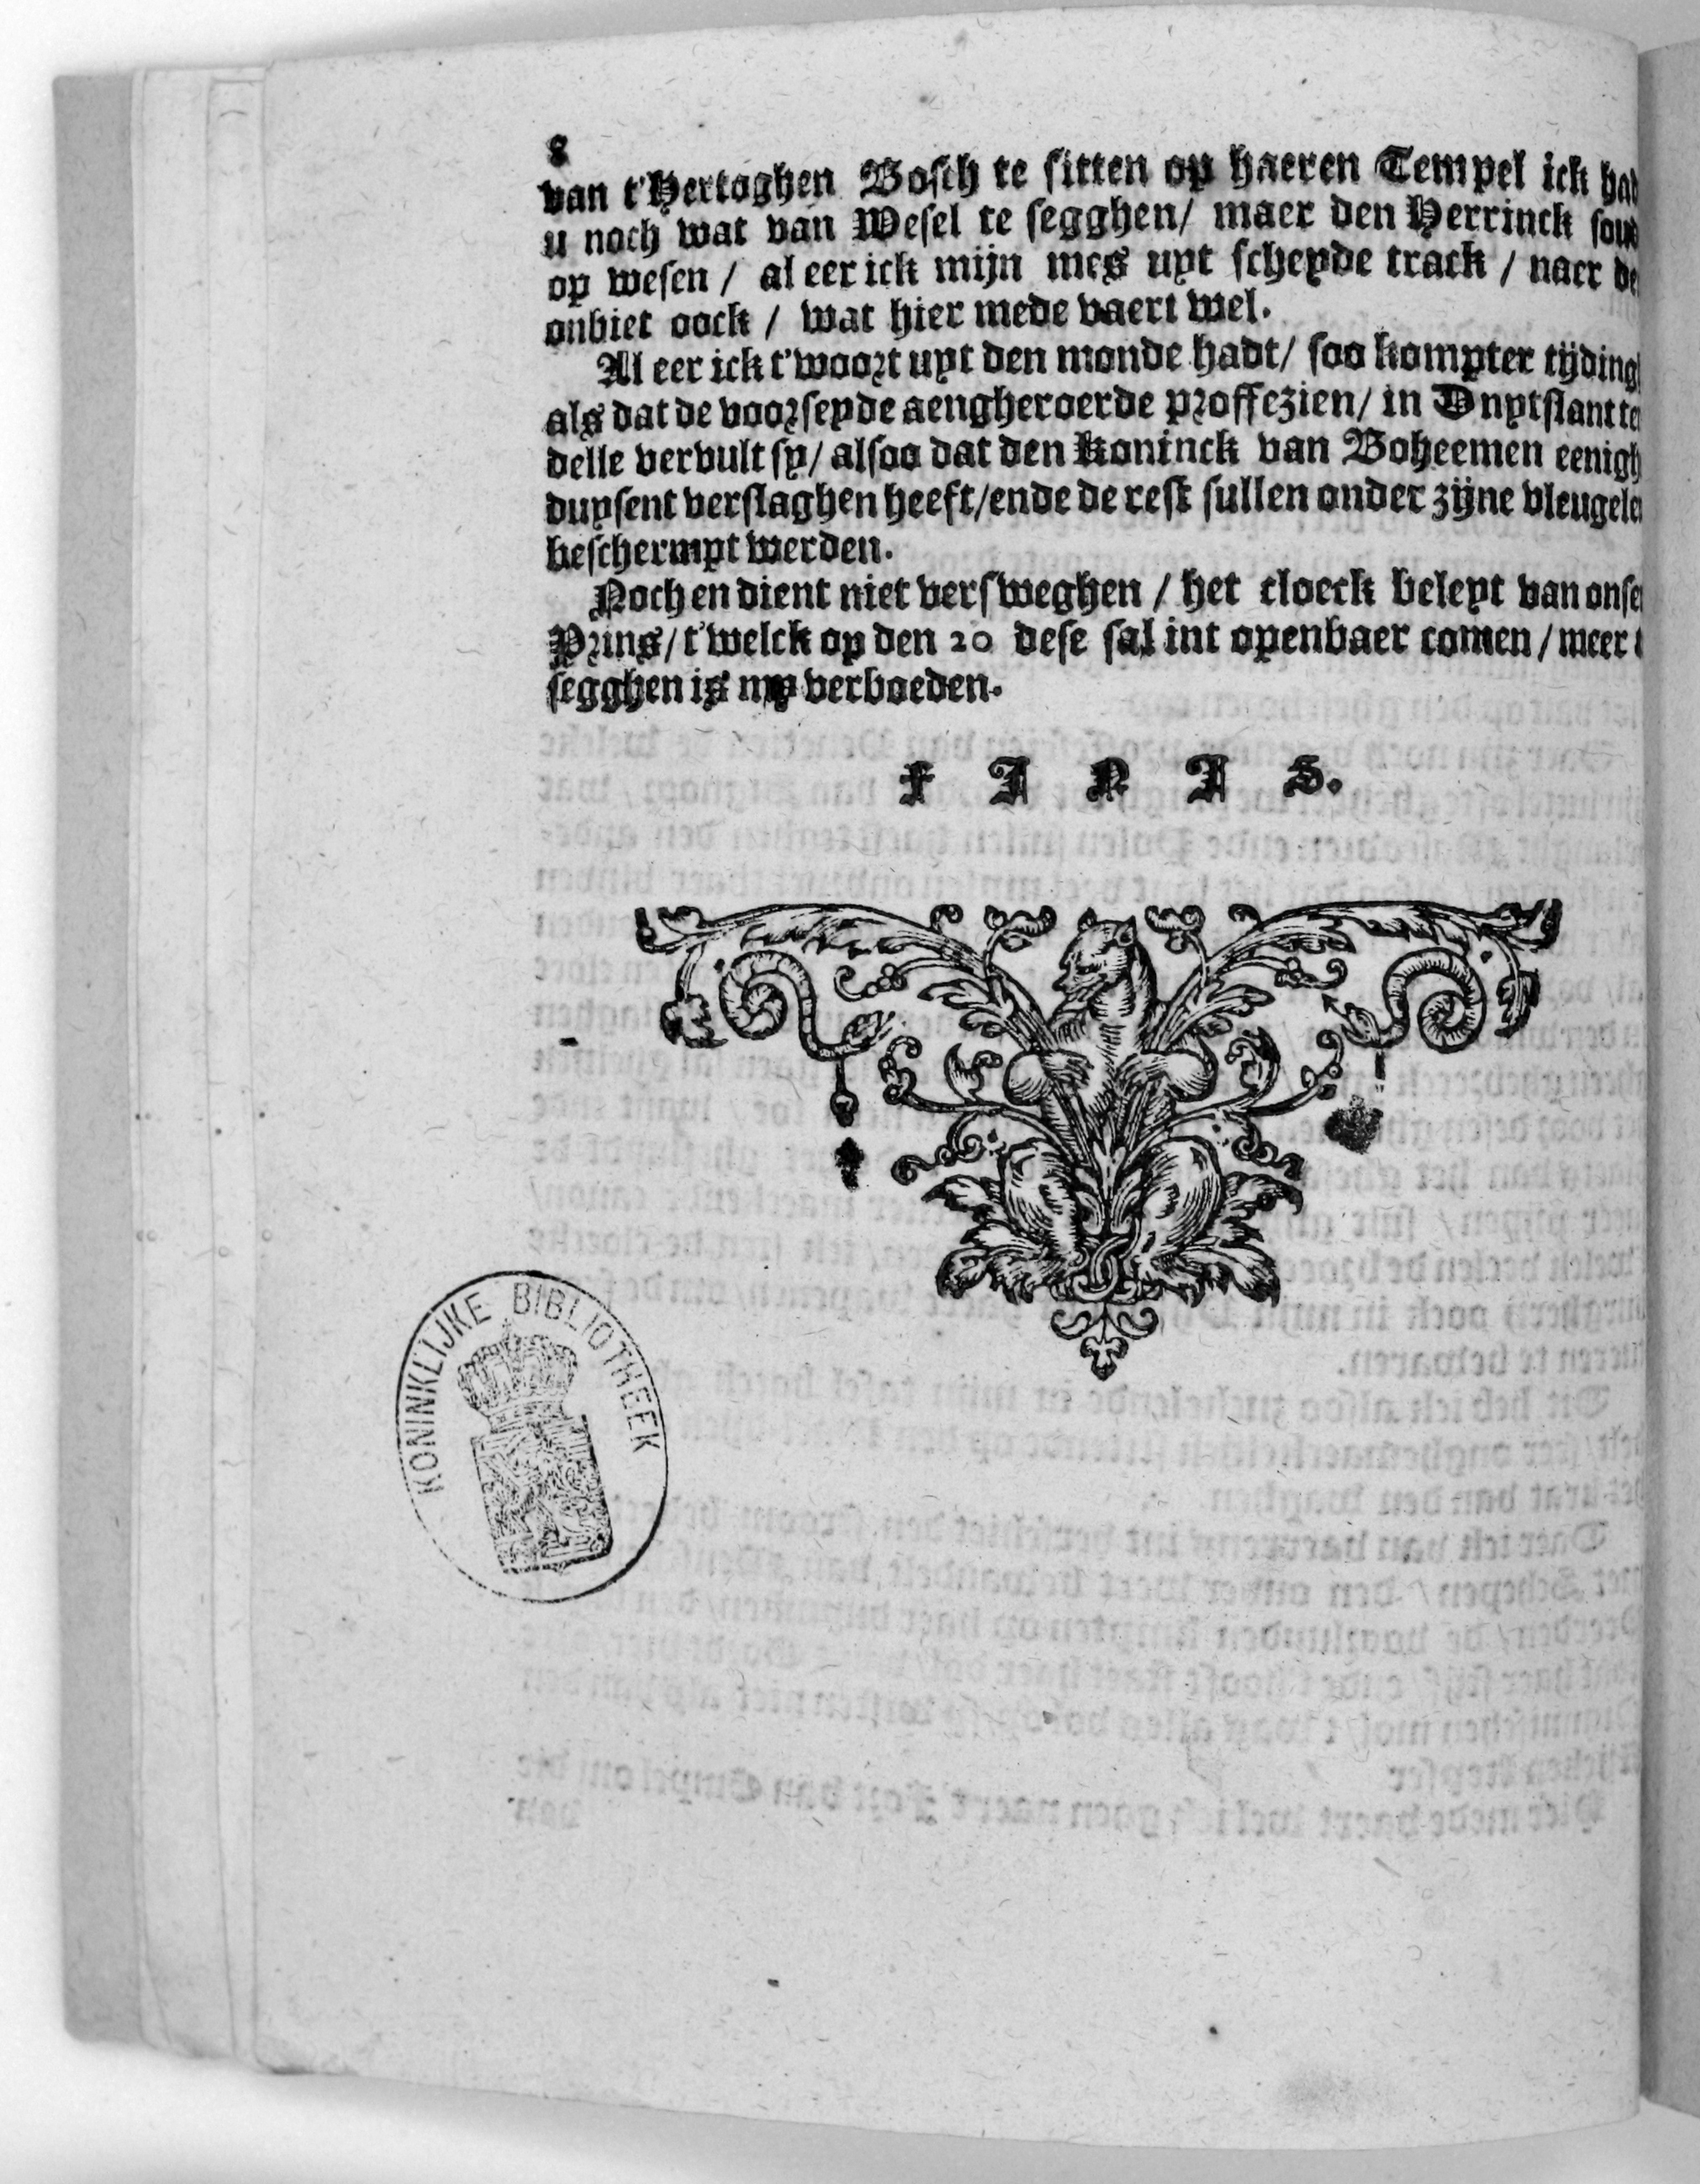 8
van t'Hertoghen Bosch te sitten op haeren Tempel ick
u noch wat van Wesel te segghen/ maer den Herrinck
op wesen / al eer ick mijn mes uyt scheyde track / naer
onbiet oock / wat hier mede vaert wel.
Al eer ick t'woort uyt den monde hadt/ soo kompter tijding
als dat de voorseyde aengheroerde proffezien/ in Dnytslant te
delle vervult sy/ alsoo dat den Koninck van Boheemen eenigh
duysent verslaghen heeft/ende de rest sullen onder zijne vleugele
beschermpt werden.
Noch en dient niet versweghen / het cloeck beleyt van onse
Prins/ t'welck op den 20 dese sal int openbaer comen / meer t
segghen is my verboeden.
FINIS.
KONINKLIJKE BIBLIOTHEEK